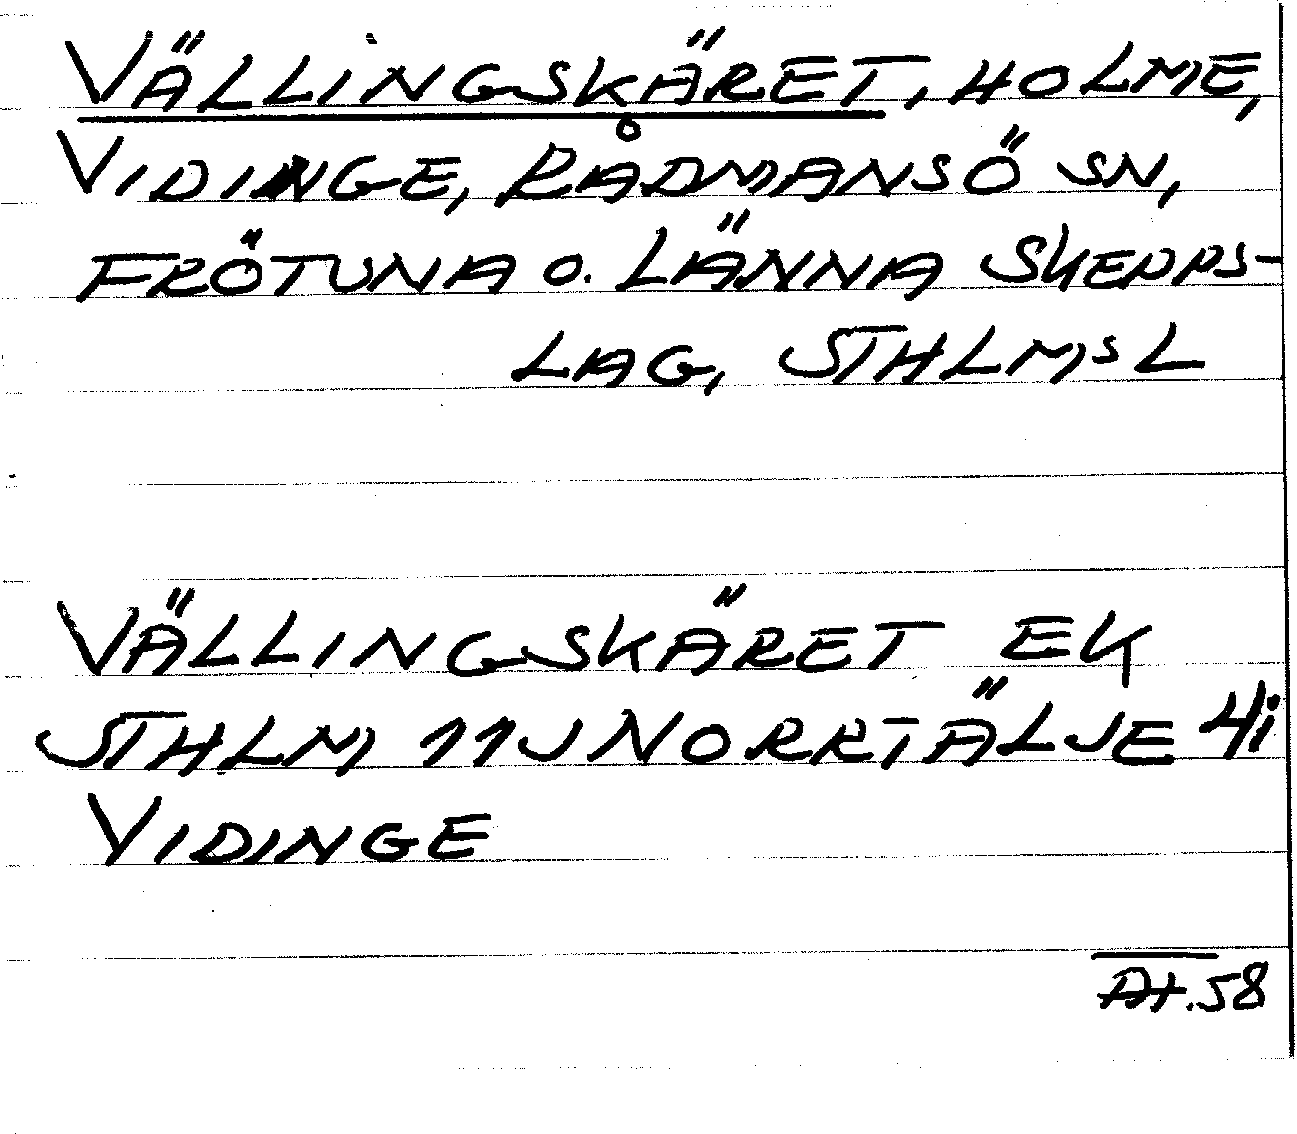 VÄLLINGSKÄRET, HOLME,
VIDINGE, RÅDMANSÖ SN,
FRÖTUNA O. LÄNNA SKEPPS-
LAG, STHLMS L
VÄLLINGSKÄRET EK
STHLM 11J NORRTÄLJE 4i
VIDINGE
At. 58